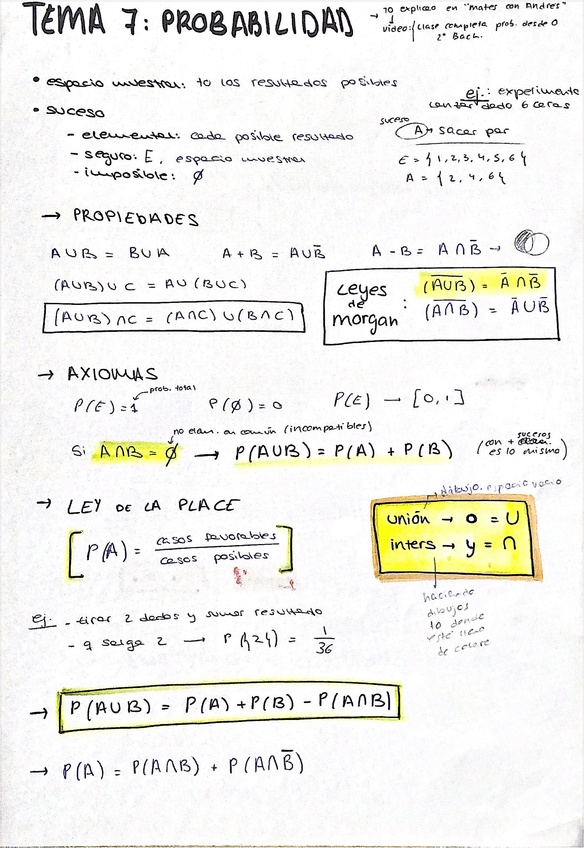 TEMA 7: PROBABILIDAD
→ to explicao en "mates con Andrés"
video: clase completa prob. desde 0
2º Bach.
• espacio muestral: to los resultados posibles
• suceso
- elemental: cada posible resultado
- seguro: E, espacio muestral
- imposible: Ø
ej.: experimento
lanzar dado 6 caras
suceso
A → sacar par
E = {1,2,3,4,5,6}
A = {2,4,6}
→ PROPIEDADES
A∪B = B∪A A+B = A∪B̄ A-B = A∩B̄ →
(A∪B)∪C = A∪(B∪C)
(A∪B)∩C = (A∩C)∪(B∩C)
Leyes de Morgan :
(A̅∪̅B̅) = Ā∩B̄
(A̅∩̅B̅) = Ā∪B̄
→ AXIOMAS
prob. total
P(E)=1 P(Ø)=0 P(E) → [0,1]
no elem. en común (incompatibles)
Si A∩B = Ø → P(A∪B) = P(A) + P(B)
(con + sucesos es lo mismo)
→ LEY DE LA PLACE
P(A) = casos favorables / casos posibles
→ dibujo. espacio vacio
unión → o = ∪
inters → y = ∩
haciendo
dibujos
to donde
esté lleno
de colore
ej. - tirar 2 dados y sumar resultado
- q salga 2 → P({2}) = 1/36
→ P(A∪B) = P(A)+P(B) - P(A∩B)
→ P(A) = P(A∩B) + P(A∩B̄)